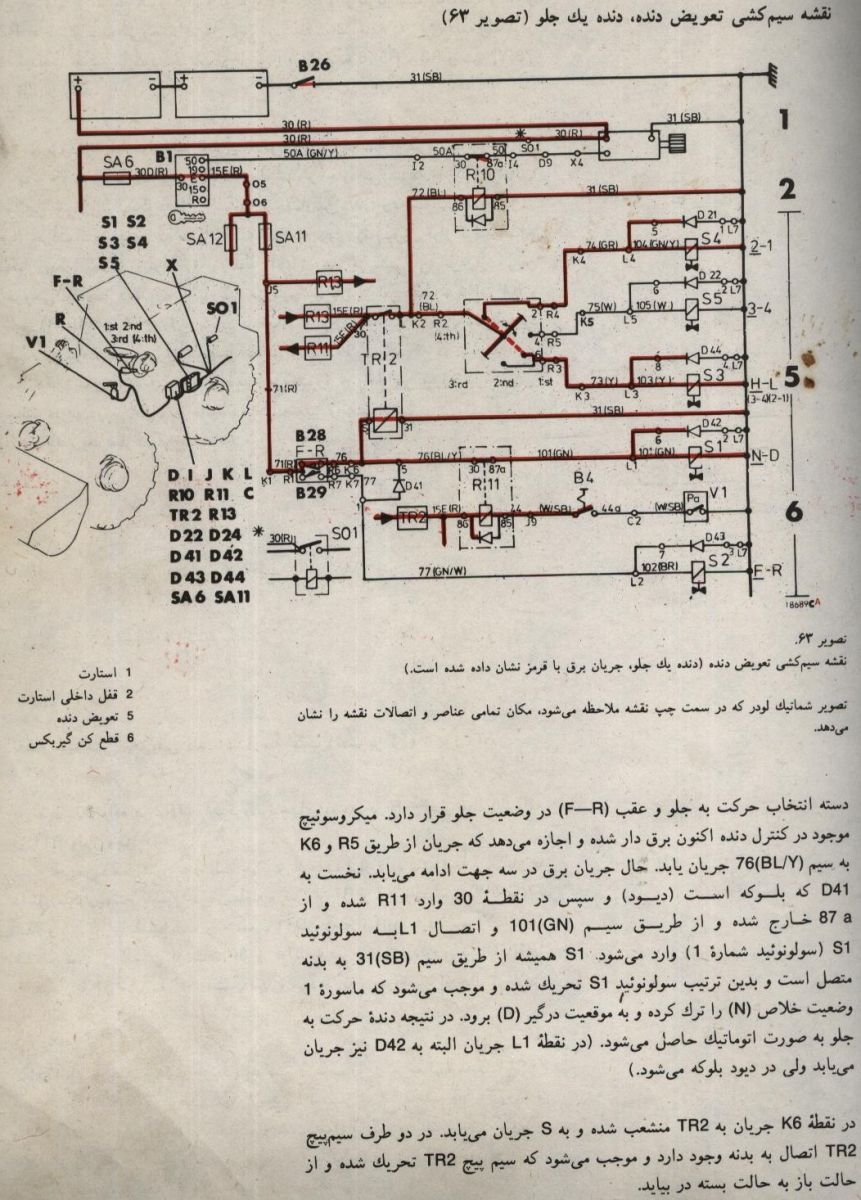 نقشه سیم‌کشی تعویض دنده، دنده یك جلو (تصویر ۶۳)
B26
31(SB)
31 (SB)
1
30 (R)
30 (R)
30(R)
*
SO1
B1
50
19
E
30
15
R
50A (GN/Y)
I2
50A
30
50
87a
I4
D9
X4
SA 6
30D(R)
15E(R)
R 10
05
06
72(BL)
86
85
31(SB)
2
SA12
SA11
S1 S2
S3 S4
S5
X
F-R
R
V1
SO1
1:st 2:nd
3:rd (4:th)
J5
R13
R13
15E(R)
R11
15E(R)
30
TR 2
L
K2
72
(BL)
R2
(4:th)
3:rd
2:nd
1:st
2
R4
4
R5
R3
K4
74(GR)
L4
104(GN/Y)
5
D 21
1 L7
S4
2-1
K5
75(W)
L5
105(W)
6
D 22
2 L7
S5
3-4
K3
73(Y)
L3
103(Y)
8
D44
4 L7
S3
H-L
(3-4)(2-1)
5
71(R)
S
31
31(SB)
B28
F-R
K1
71(R)
R1
76
R6
K6
R7
K7
77
B29
76(BL/Y)
5
D41
1
30
87a
R 11
101(GN)
L1
101(GN)
6
D42
2 L7
S1
N-D
TR2
15E(R)
86
85
44
J9
(W/SB)
B4
44a
C2
(W/SB)
Pa
V 1
6
77(GN/W)
L2
102(BR)
7
D43
3 L7
S 2
F-R
18689CA
D I J K L
R10 R11 C
TR2 R13
D22 D24
D41 D42
D43 D44
SA6 SA11
*
30(R)
SO1
تصویر ۶۳.
نقشه سیم‌کشی تعویض دنده (دنده یك جلو، جریان برق با قرمز نشان داده شده است.)
تصویر شماتیك لودر که در سمت چپ نقشه ملاحظه می‌شود، مکان تمامی عناصر و اتصالات نقشه را نشان
می‌دهد.
1 استارت
2 قفل داخلی استارت
5 تعویض دنده
6 قطع کن گیربکس
دسته انتخاب حرکت به جلو و عقب (F—R) در وضعیت جلو قرار دارد. میکروسوئیچ
موجود در کنترل دنده اکنون برق دار شده و اجازه می‌دهد که جریان از طریق R5 و K6
به سیم 76(BL/Y) جریان یابد. حال جریان برق در سه جهت ادامه می‌یابد. نخست به
D41 که بلوکه است (دیود) و سپس در نقطهٔ 30 وارد R11 شده و از
87 a خارج شده و از طریق سیم 101(GN) و اتصال L1به سولونوئید
S1 (سولونوئید شمارهٔ 1) وارد می‌شود. S1 همیشه از طریق سیم 31(SB) به بدنه
متصل است و بدین ترتیب سولونوئید S1 تحریك شده و موجب می‌شود که ماسورهٔ 1
وضعیت خلاص (N) را ترك کرده و به موقعیت درگیر (D) برود. در نتیجه دندهٔ حرکت به
جلو به صورت اتوماتیك حاصل می‌شود. (در نقطهٔ L1 جریان البته به D42 نیز جریان
می‌یابد ولی در دیود بلوکه می‌شود.)
در نقطهٔ K6 جریان به TR2 منشعب شده و به S جریان می‌یابد. در دو طرف سیم‌پیچ
TR2 اتصال به بدنه وجود دارد و موجب می‌شود که سیم پیچ TR2 تحریك شده و از
حالت باز به حالت بسته در بیاید.